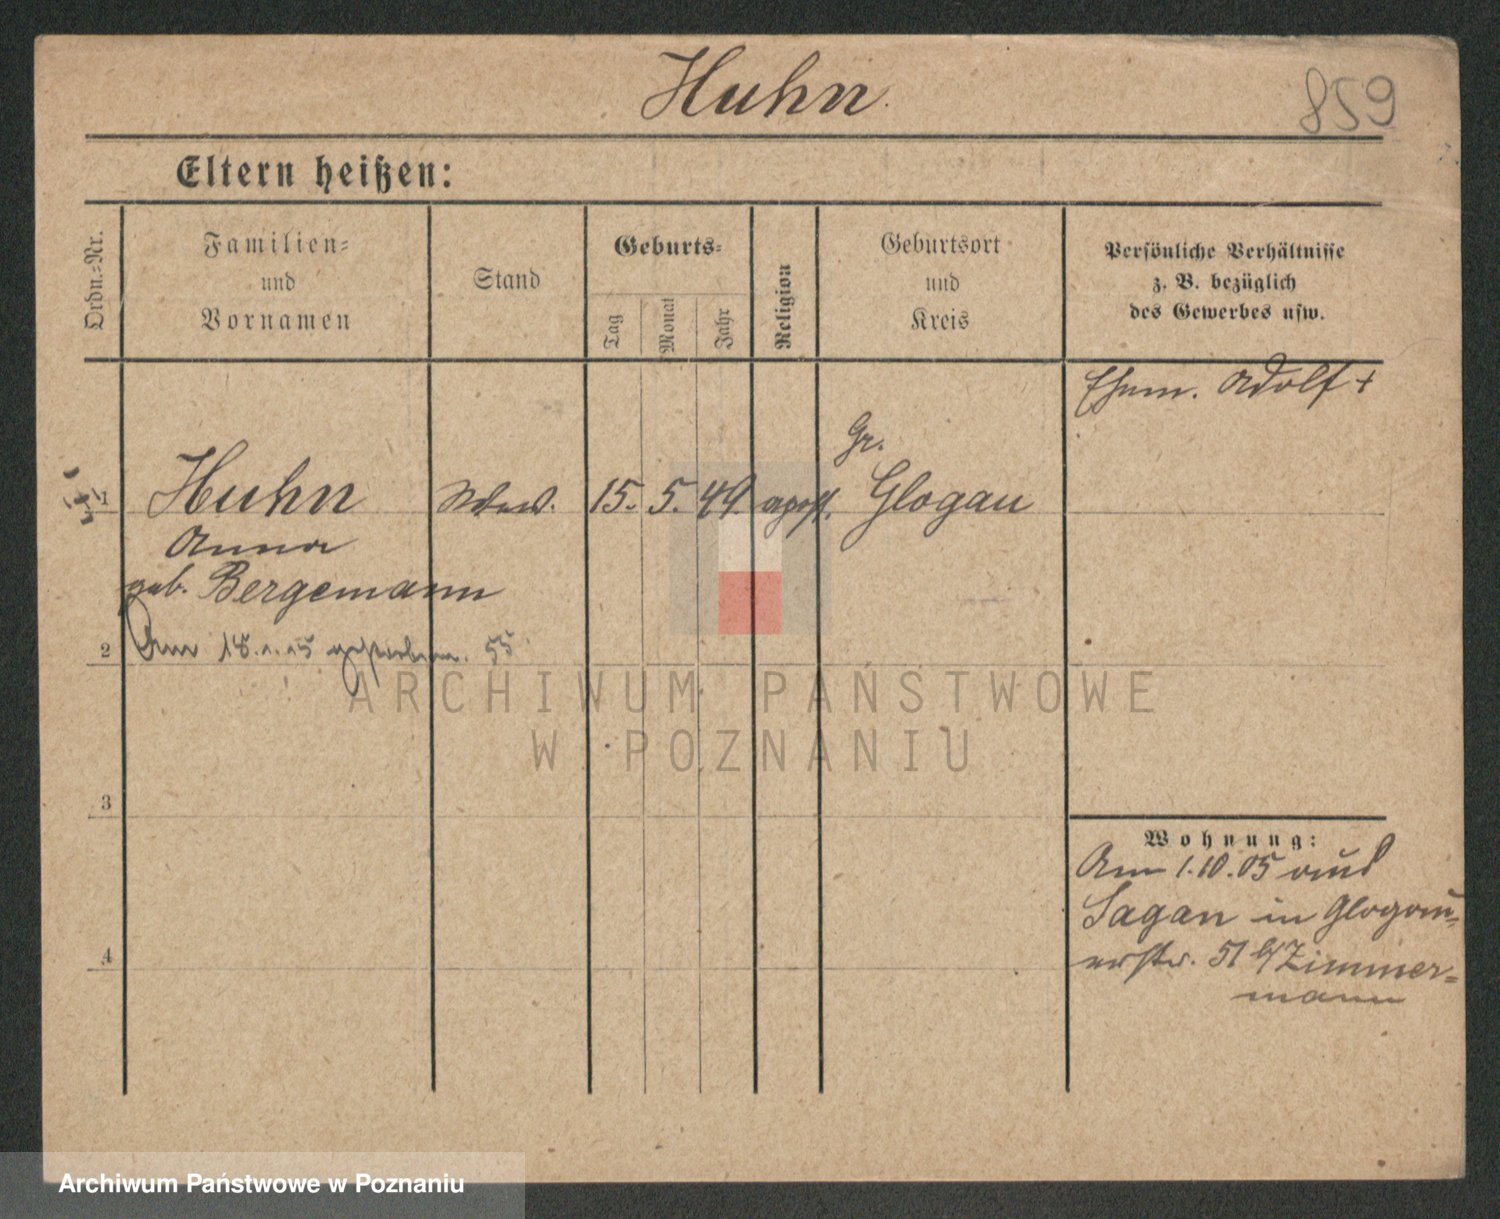 Huhn.
859
Eltern heißen:
Ordn.=Nr.
Familien=
und
Vornamen
Stand
Geburts=
Tag
Monat
Jahr
Religion
Geburtsort
und
Kreis
Persönliche Verhältnisse
z. B. bezüglich
des Gewerbes usw.
Ehem. Adolf +
1
Huhn
Anna
geb. Bergemann
Wwe.
15. 5. 49
apost.
Gr.
Glogau
2
Am 18.1.15 gestorben. 55
3
4
Wohnung:
Am 1.10.05 aus
Sagan in Glogau=
erstr. 51 b/Zimmer=
mann
ARCHIWUM PAŃSTWOWE
W POZNANIU
Archiwum Państwowe w Poznaniu